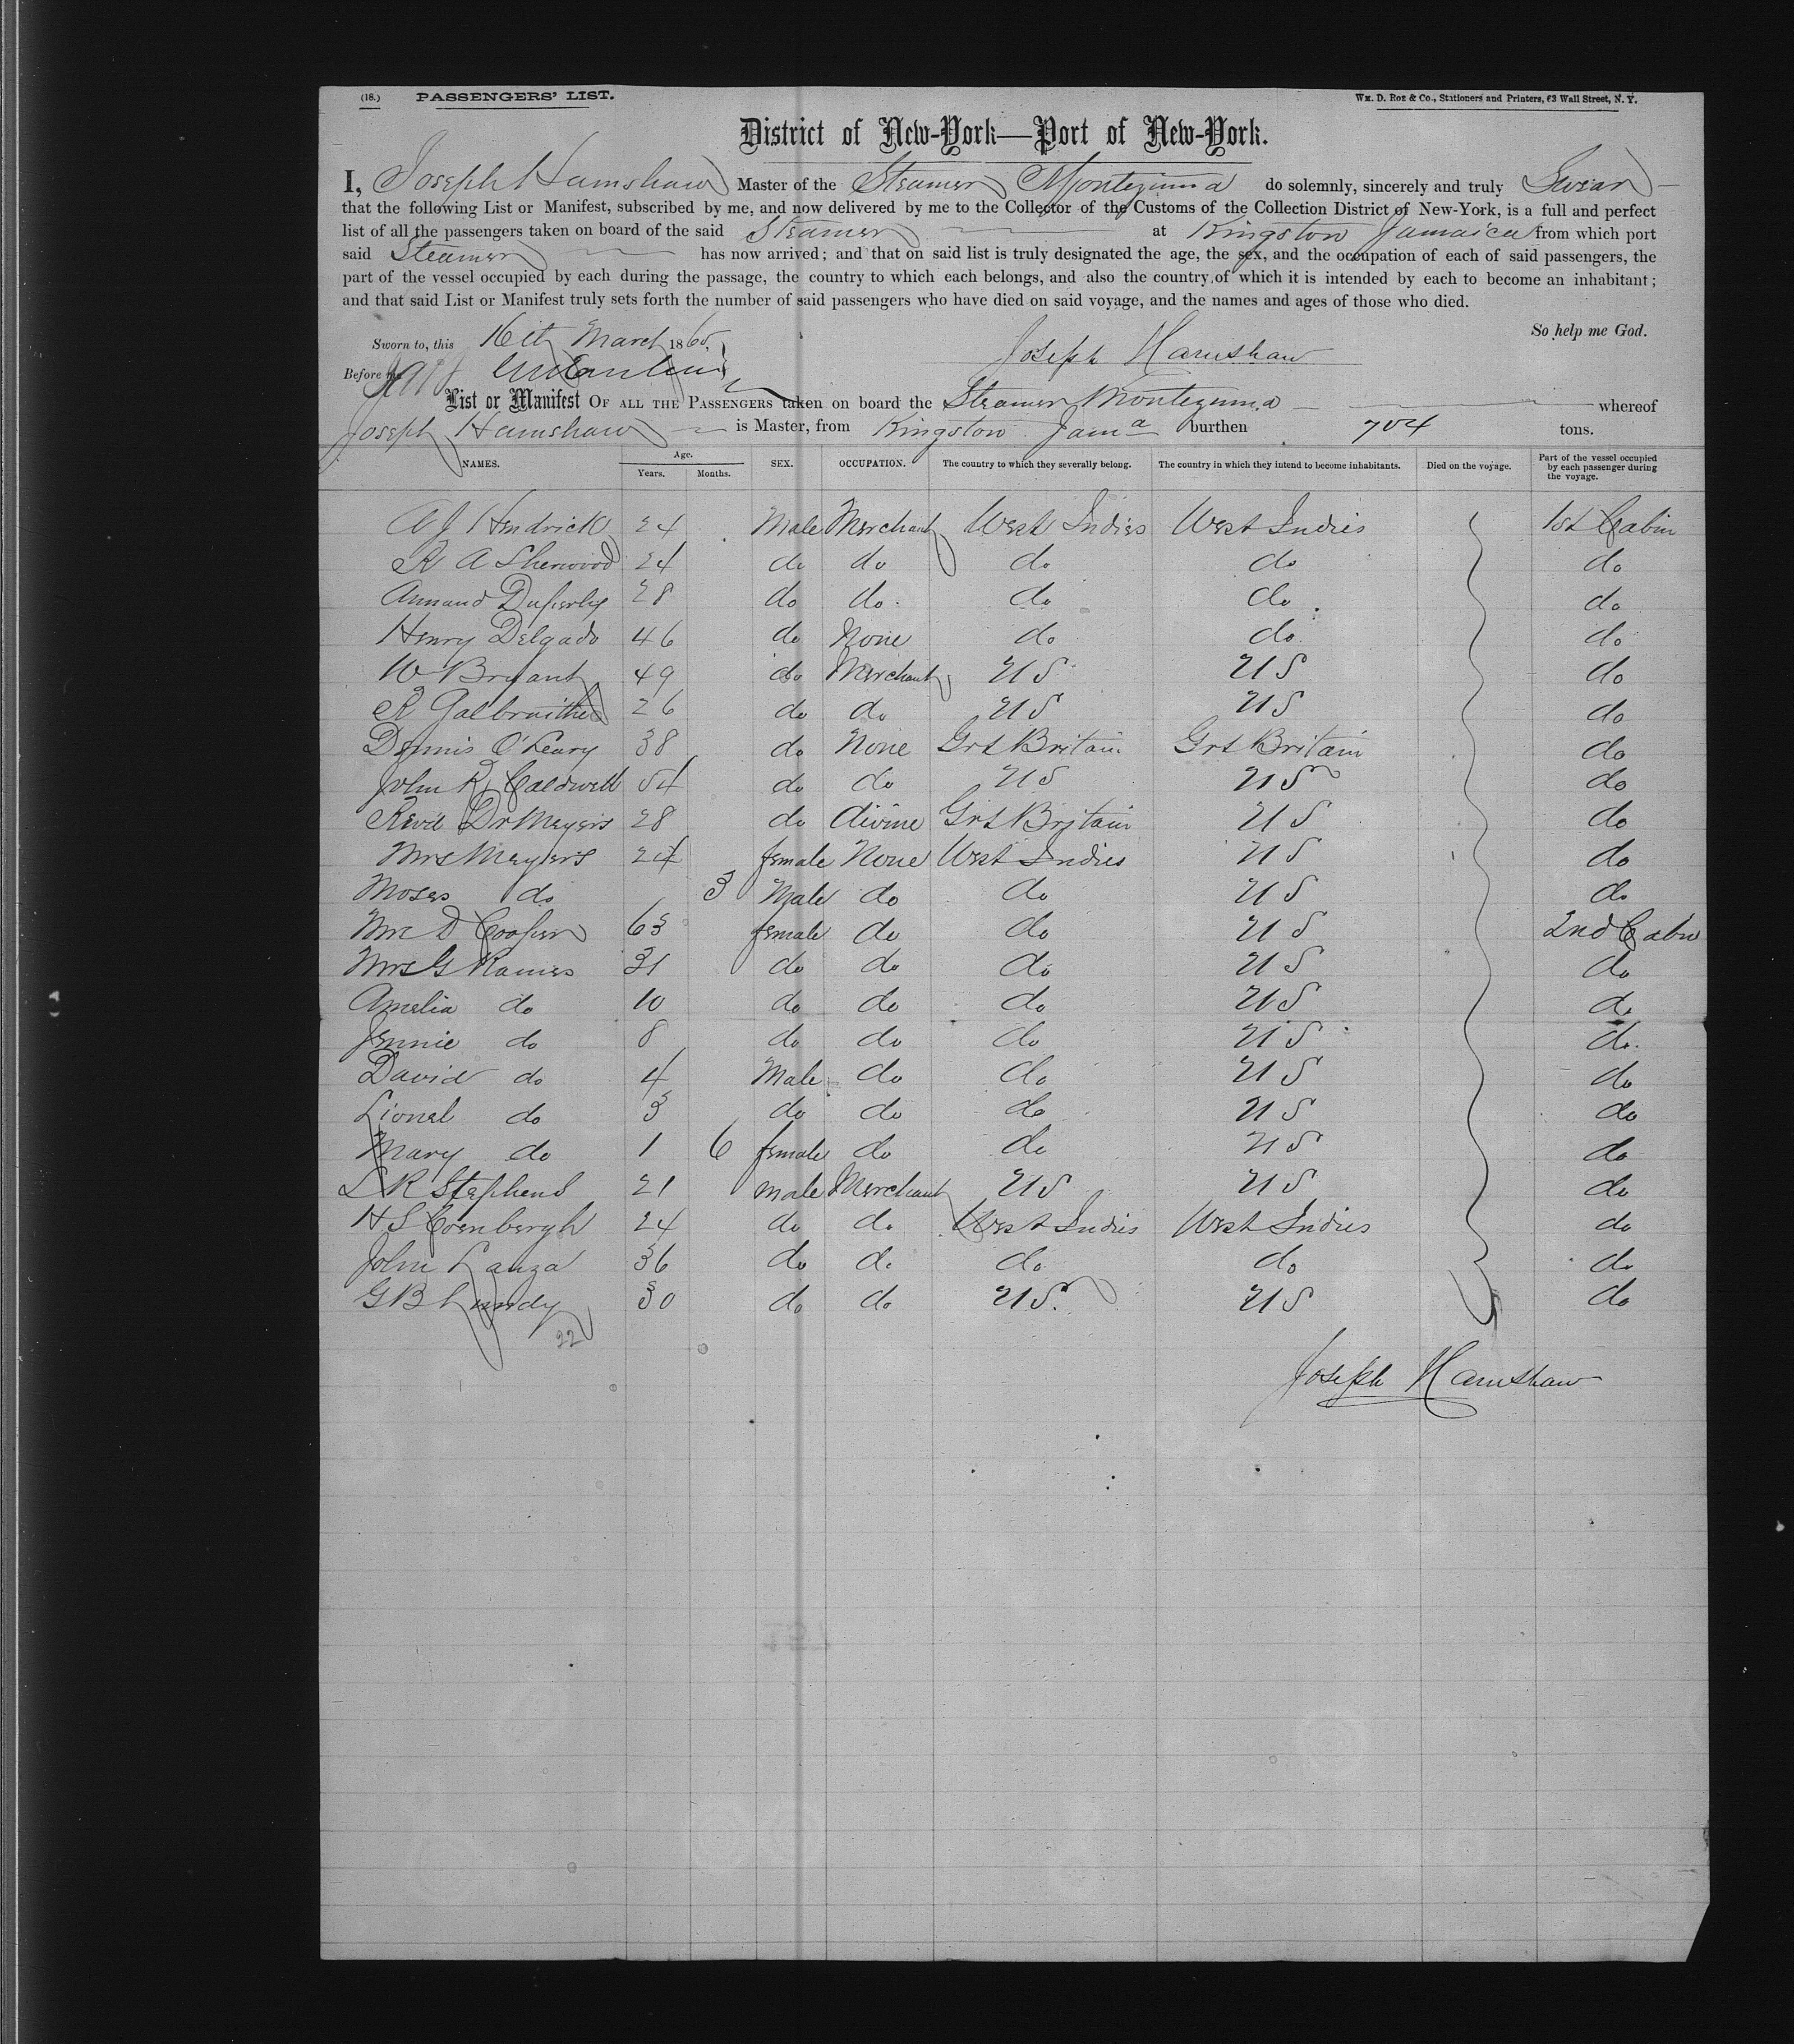 (18.) PASSENGERS' LIST. Wm. D. Roe & Co., Stationers and Printers, 63 Wall Street, N. Y.
District of New-York—Port of New-York.
I, Joseph Hamshaw Master of the Steamer Montezuma do solemnly, sincerely and truly Swear
that the following List or Manifest, subscribed by me, and now delivered by me to the Collector of the Customs of the Collection District of New-York, is a full and perfect
list of all the passengers taken on board of the said Steamer at Kingston Jamaica from which port
said Steamer has now arrived; and that on said list is truly designated the age, the sex, and the occupation of each of said passengers, the
part of the vessel occupied by each during the passage, the country to which each belongs, and also the country of which it is intended by each to become an inhabitant;
and that said List or Manifest truly sets forth the number of said passengers who have died on said voyage, and the names and ages of those who died.
So help me God.
Sworn to, this 16th March 1865, Joseph Hamshaw
Before me
List or Manifest OF ALL THE PASSENGERS taken on board the Steamer Montezuma whereof
Joseph Hamshaw is Master, from Kingston Jama burthen 704 tons.
NAMES. Age. Years. Months. SEX. OCCUPATION. The country to which they severally belong. The country in which they intend to become inhabitants. Died on the voyage. Part of the vessel occupied by each passenger during the voyage.
A J Hendrick 24 Male Merchant West Indies West Indies 1st Cabin
R A Sherwood 24 do do do do do
Armand Duperly 28 do do do do do
Henry Delgado 46 do None do do do
W Bryant 49 do Merchant US US do
R Galbraith 26 do do US US do
Dennis O'Leary 38 do None Grt Britain Grt Britain do
John R Caldwell 54 do do US US do
Revd Dr Meyers 28 do divine Grt Britain US do
Mrs Meyers 24 female None West Indies US do
Moses do 3 Male do do US do
Mrs D Cooper 63 female do do US 2nd Cabin
Mrs G Ramies 31 do do do US do
Amelia do 10 do do do US do
Jennie do 8 do do do US do
David do 4 Male do do US do
Lional do 3 do do do US do
Mary do 1 6 female do do US do
L R Stephens 21 male Merchant US US do
H S Coenbergh 24 do do West Indies West Indies do
John Lanza 36 do do do do do
G B Lundy 30 do do US. US do
22
Joseph Hamshaw